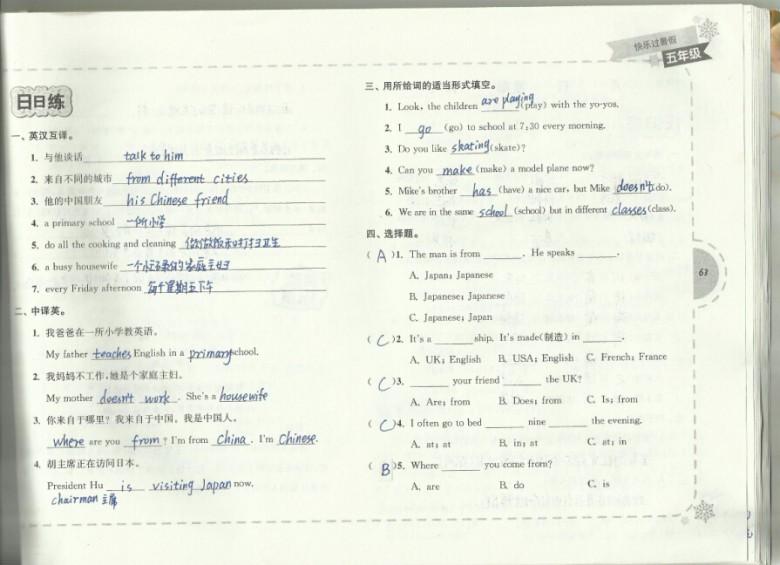 快乐过暑假
五年级
日日练
一、英汉互译。
1. 与他谈话 talk to him
2. 来自不同的城市 from different cities
3. 他的中国朋友 his Chinese friend
4. a primary school 一所小学
5. do all the cooking and cleaning 做饭和打扫卫生
6. a busy housewife 一个忙碌的家庭主妇
7. every Friday afternoon 每个星期五下午
二、中译英。
1. 我爸爸在一所小学教英语。
My father teaches English in a primary school.
2. 我妈妈不工作,她是个家庭主妇。
My mother doesn't work. She's a housewife
3. 你来自于哪里？我来自于中国。我是中国人。
where are you from? I'm from China. I'm Chinese.
4. 胡主席正在访问日本。
President Hu is visiting Japan now.
chairman 主席
三、用所给词的适当形式填空。
1. Look, the children are playing (play) with the yo-yos.
2. I go (go) to school at 7:30 every morning.
3. Do you like skating (skate)?
4. Can you make (make) a model plane now?
5. Mike's brother has (have) a nice car, but Mike doesn't (do).
6. We are in the same school (school) but in different classes (class).
四、选择题。
( A )1. The man is from ______. He speaks ______.
A. Japan; Japanese
B. Japanese; Japanese
C. Japanese; Japan
( C )2. It's a ______ ship. It's made(制造) in ______.
A. UK; English B. USA; English C. French; France
( C )3. ______ your friend ______ the UK?
A. Are; from B. Does; from C. Is; from
( C )4. I often go to bed ______ nine ______ the evening.
A. at; at B. in; at C. at; in
( B )5. Where ______ you come from?
A. are B. do C. is
63